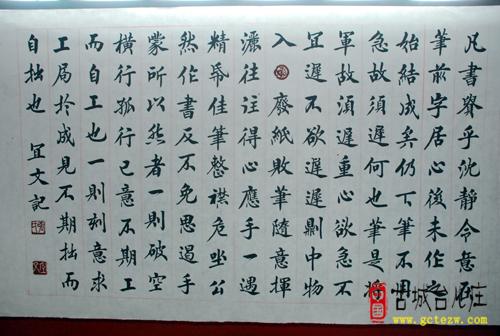 凡書貴乎沈靜令意在
筆前字居心後未作之
始結成矣仍下筆不用
急故須遲何也筆是將
軍故須遲重心欲急不
宜遲不欲遲則中物
入 廢紙敗筆隨意揮
灑往往得心應手一遇
精帋佳筆整襟危坐公
然作書反不免思遏手
蒙所以然者一則破空
橫行孤行己意不期工
而自工也一則刻意求
工局於成見不期拙而
自拙也 宜文記
www.gctezw.com